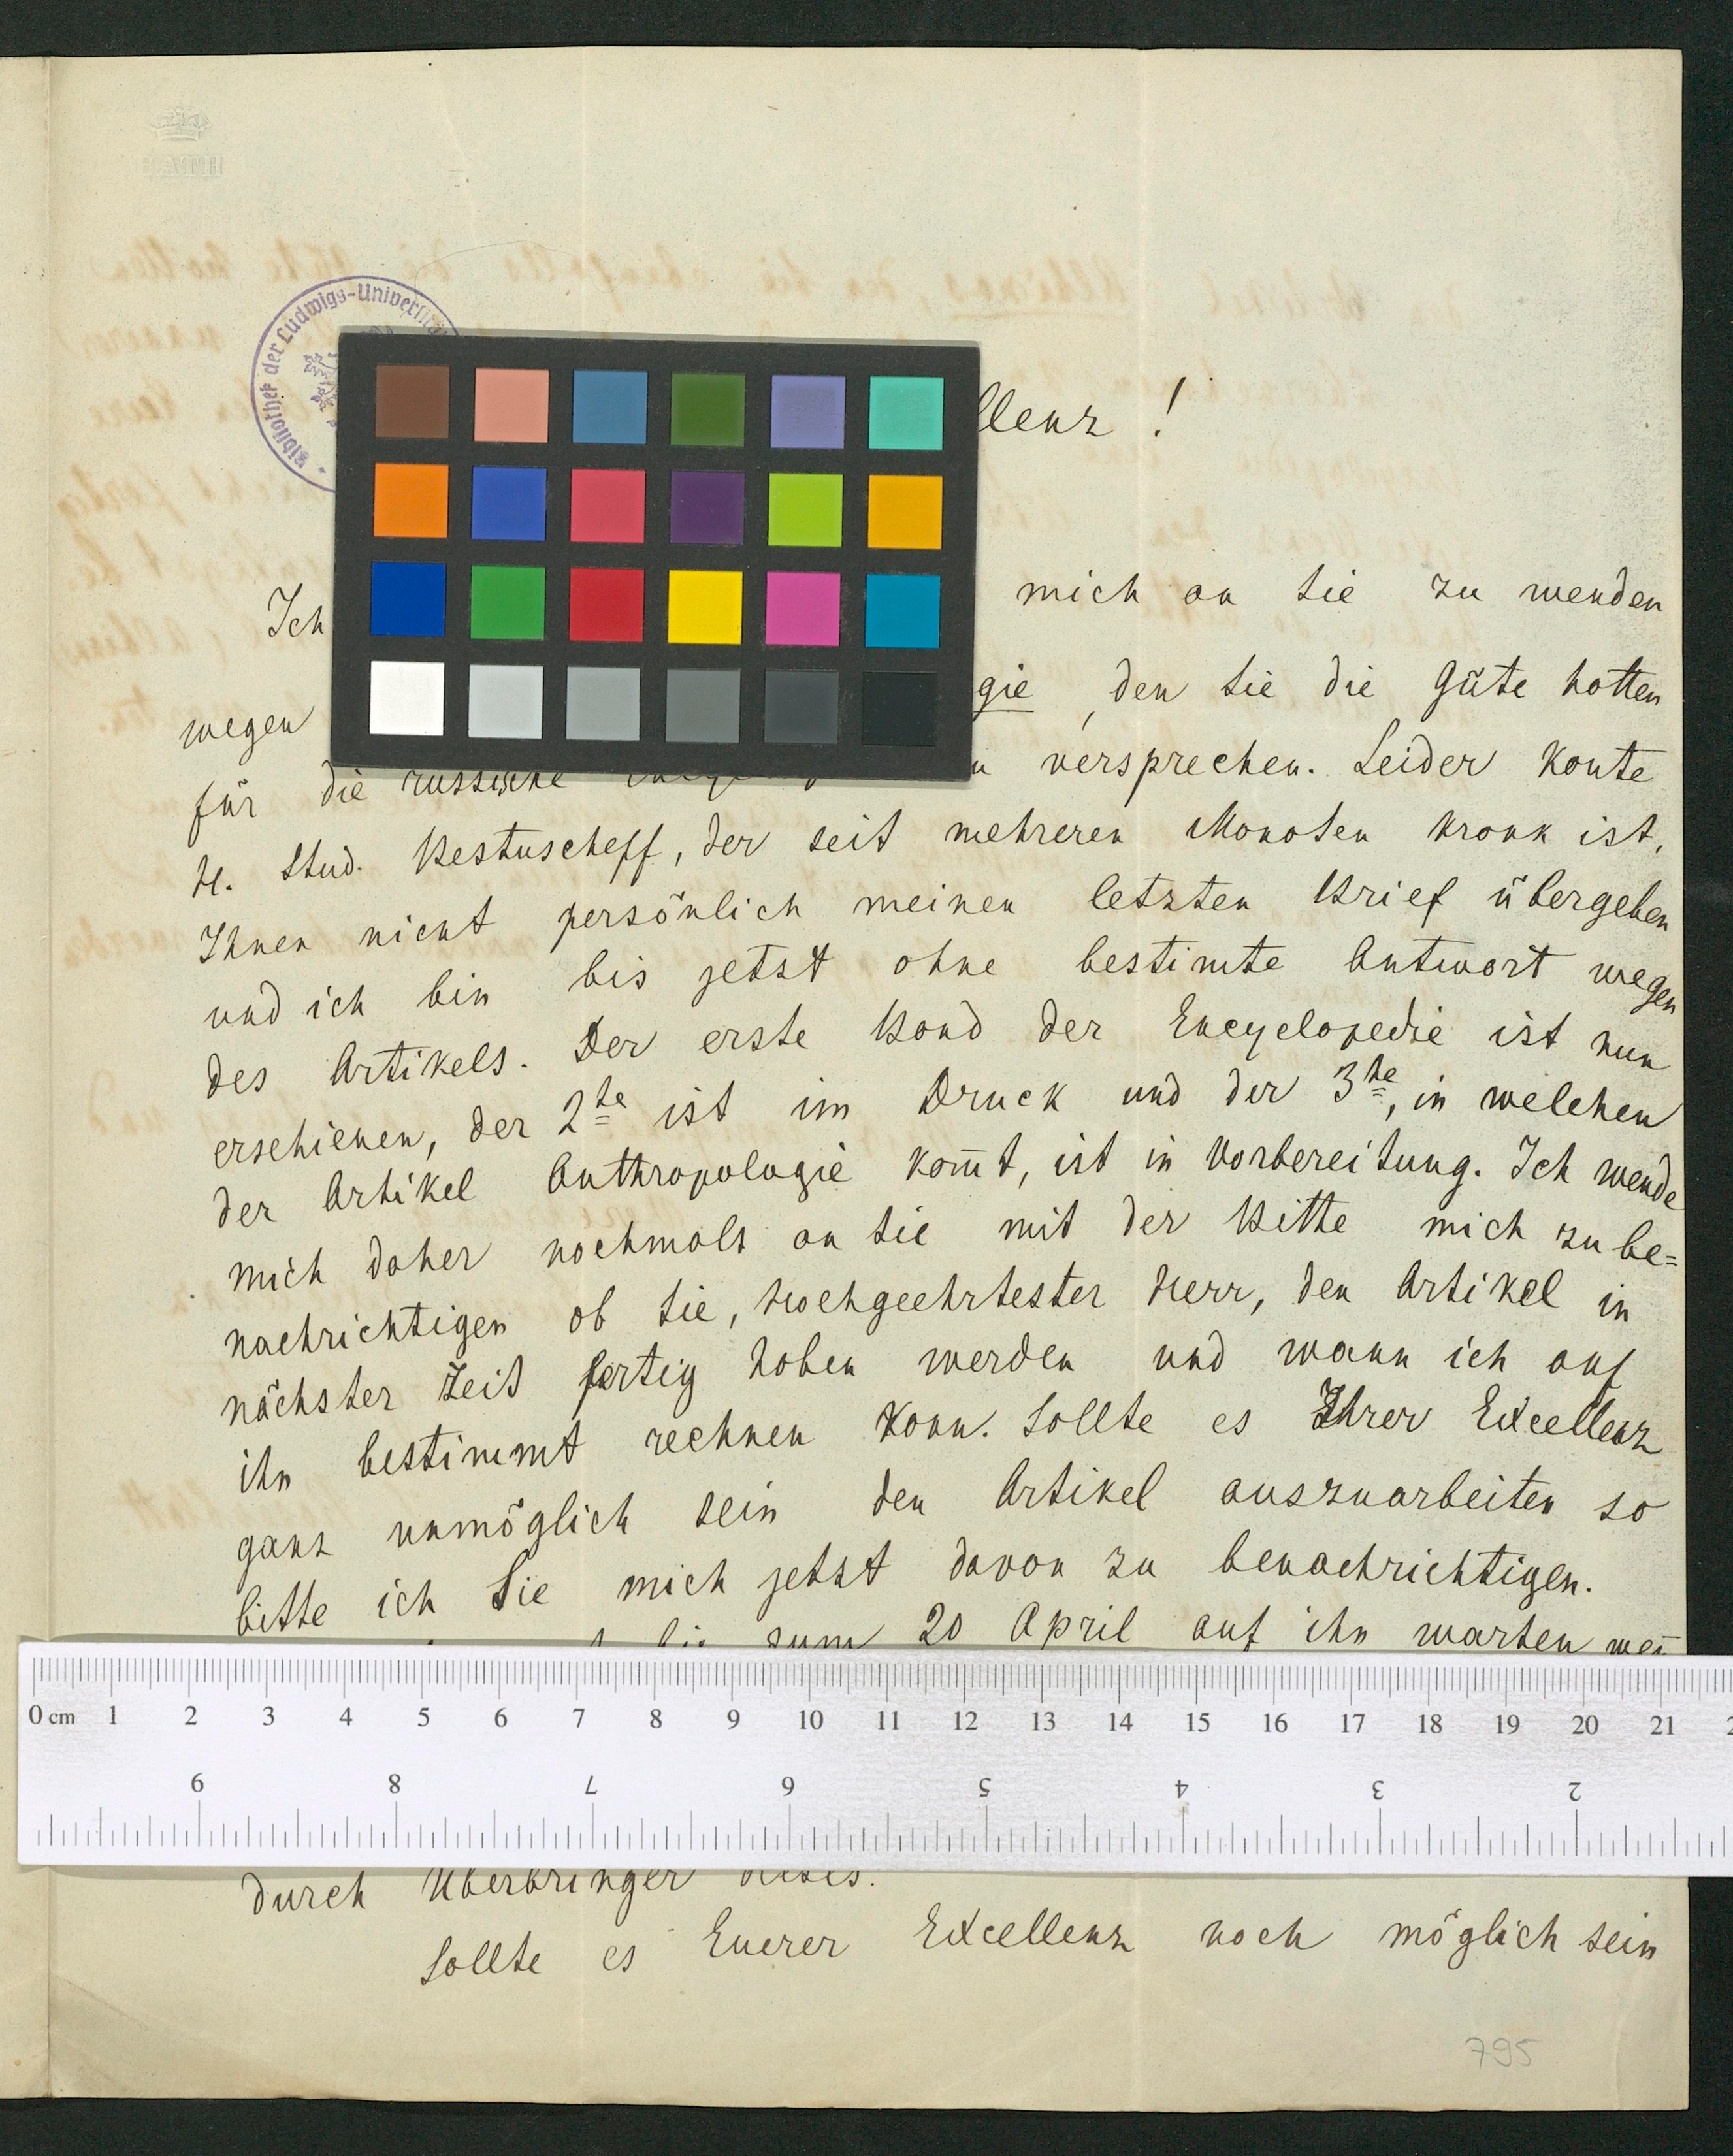 Bibliothek der Ludwigs-Universität
llenz !
Ich mich an Sie zu wenden
wegen gie, den Sie die Güte hatten
für die russische versprechen. Leider konte
H. Stud. Bestuscheff, der seit mehreren Monaten krank ist,
Ihnen nicht persönlich meinen letzten Brief übergeben
und ich bin bis jetzt ohne bestimte Antwort wegen
des Artikels. Der erste Band der Encyclopedie ist nun
erschienen, der 2te ist im Druck und der 3te, in welchen
der Artikel Anthropologie kom̅t, ist in Vorbereitung. Ich wende
mich daher nochmals an Sie mit der Bitte mich zu be=
nachrichtigen ob Sie, Hochgeehrtester Herr, den Artikel in
nächster Zeit fertig haben werden und wann ich auf
ihn bestimmt rechnen kann. Sollte es Ihrer Excellenz
ganz unmöglich sein den Artikel auszuarbeiten so
bitte ich Sie mich jetzt davon zu benachrichtigen.
zum 20 April auf ihn warten
0 cm 1 2 3 4 5 6 7 8 9 10 11 12 13 14 15 16 17 18 19 20 21
9 8 7 6 5 4 3 2
durch Überbringer dieses.
Sollte es Euerer Excellenz noch möglich sein
795